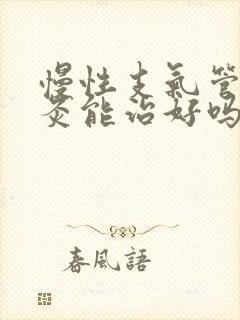 慢性支氣管
灸能治好吗
春風語